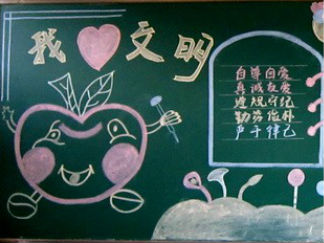 我❤文明
自尊自爱
真诚友爱
遵规守纪
勤劳俭朴
严于律己